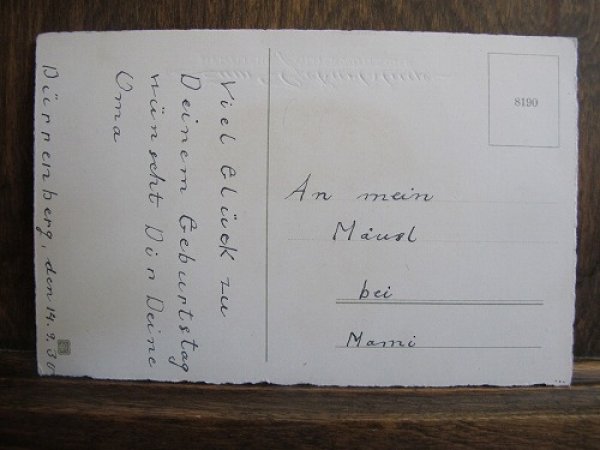 Viel Glück zu
Deinem Geburtstag
wünscht Dir Deine
Oma
Dürrenberg, den 14.9.30
8190
An mein
Mäusl
bei
Mami